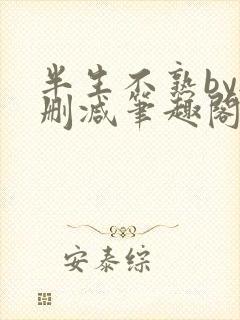 半生不熟by
删减笔趣阁
安泰综